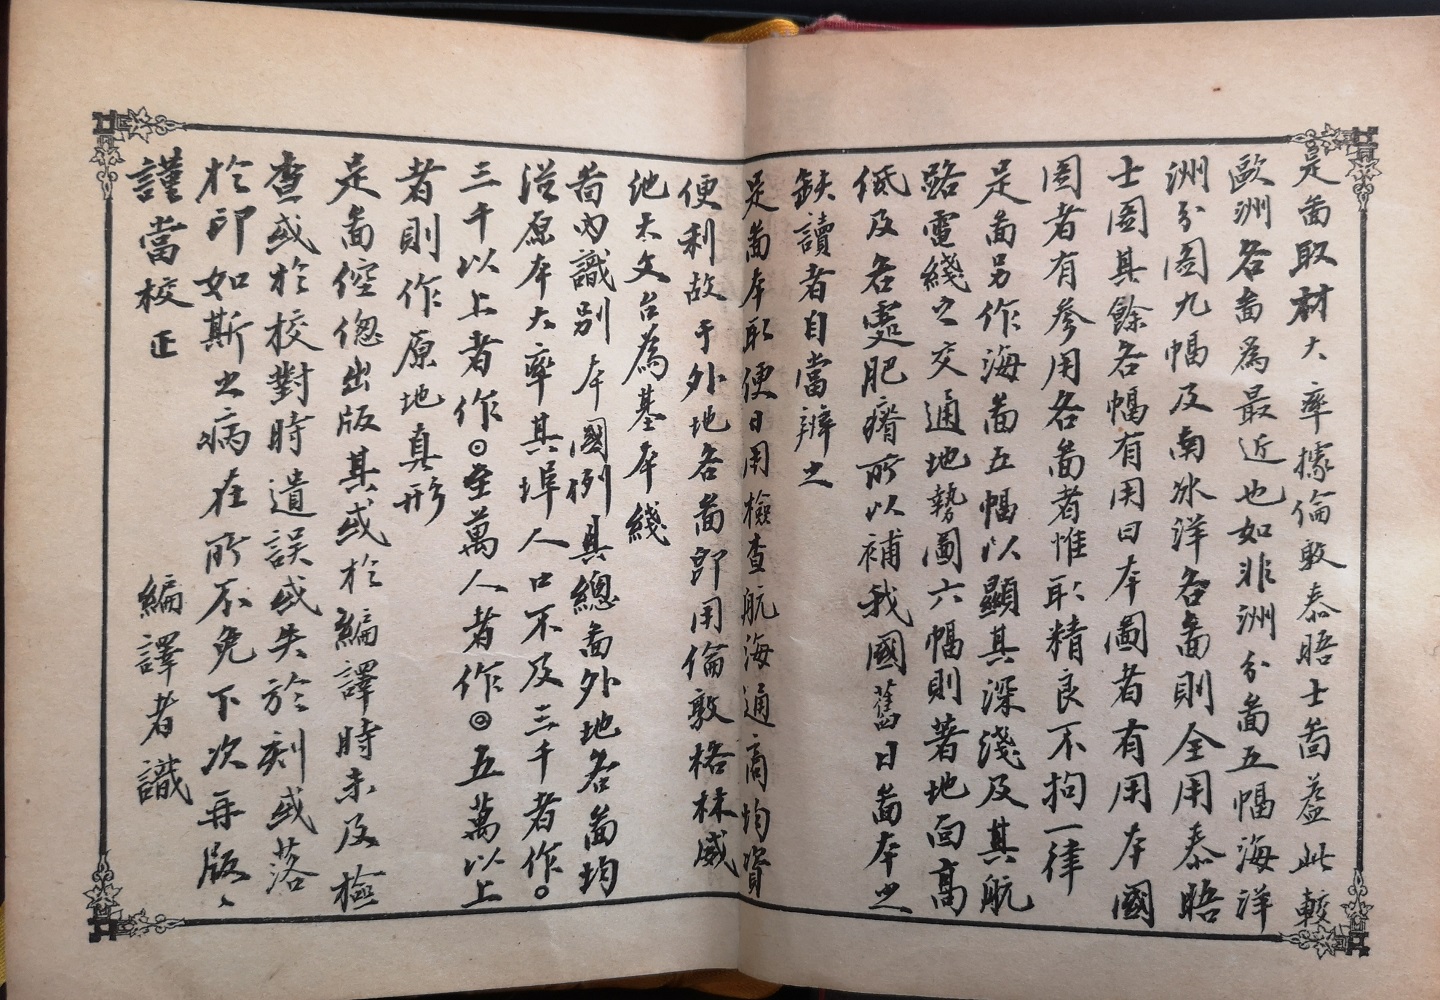 是啚取材大率據倫敦泰晤士啚蓋此較
歐洲各啚為最近也如非洲分啚五幅海洋
洲分圖九幅及南冰洋各啚則全用泰晤
士圖其餘各幅有用日本圖者有用本國
圖者有參用各啚者惟取精良不拘一律
是啚另作海啚五幅以顯其深淺及其航
路電綫之交通地勢圖六幅則著地面高
低及各處肥瘠所以補我國舊日啚本之
缺讀者自當辨之
是啚本取便日用檢查航海通商均資
便利故于外地各啚即用倫敦格林威
池天文台為基本綫
啚內識別本國例具總啚外地各啚均
沿原本大率其埠人口不及三千者作○
三千以上者作⊙至萬人者作◎五萬以上
者則作原地真形
是啚倥傯出版其或於編譯時未及檢
查或於校對時遺誤或失於刻或落
於印如斯之病在所不免下次再版、
謹當校正
編譯者識